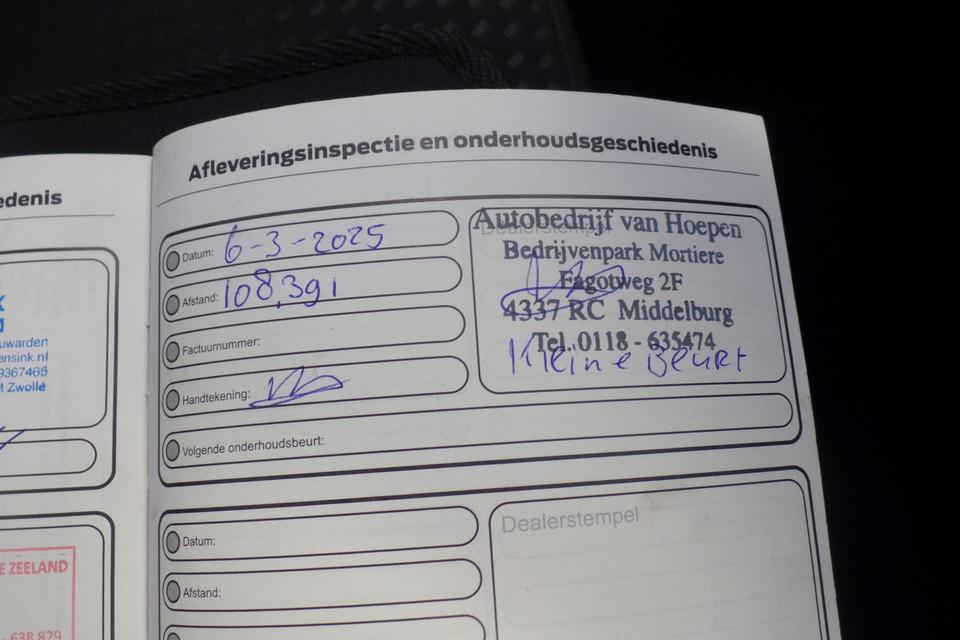 edenis
uwarden
ensink.nl
9367465
Zwolle
E ZEELAND
- 638 829
Afleveringsinspectie en onderhoudsgeschiedenis
Datum: 6-3-2025
Afstand: 108,391
Factuurnummer:
Handtekening:
Volgende onderhoudsbeurt:
Autobedrijf van Hoepen
Bedrijvenpark Mortiere
Fagotweg 2F
4337 RC Middelburg
Tel. 0118 - 635474
Kleine Beurt
Datum:
Afstand:
Dealerstempel